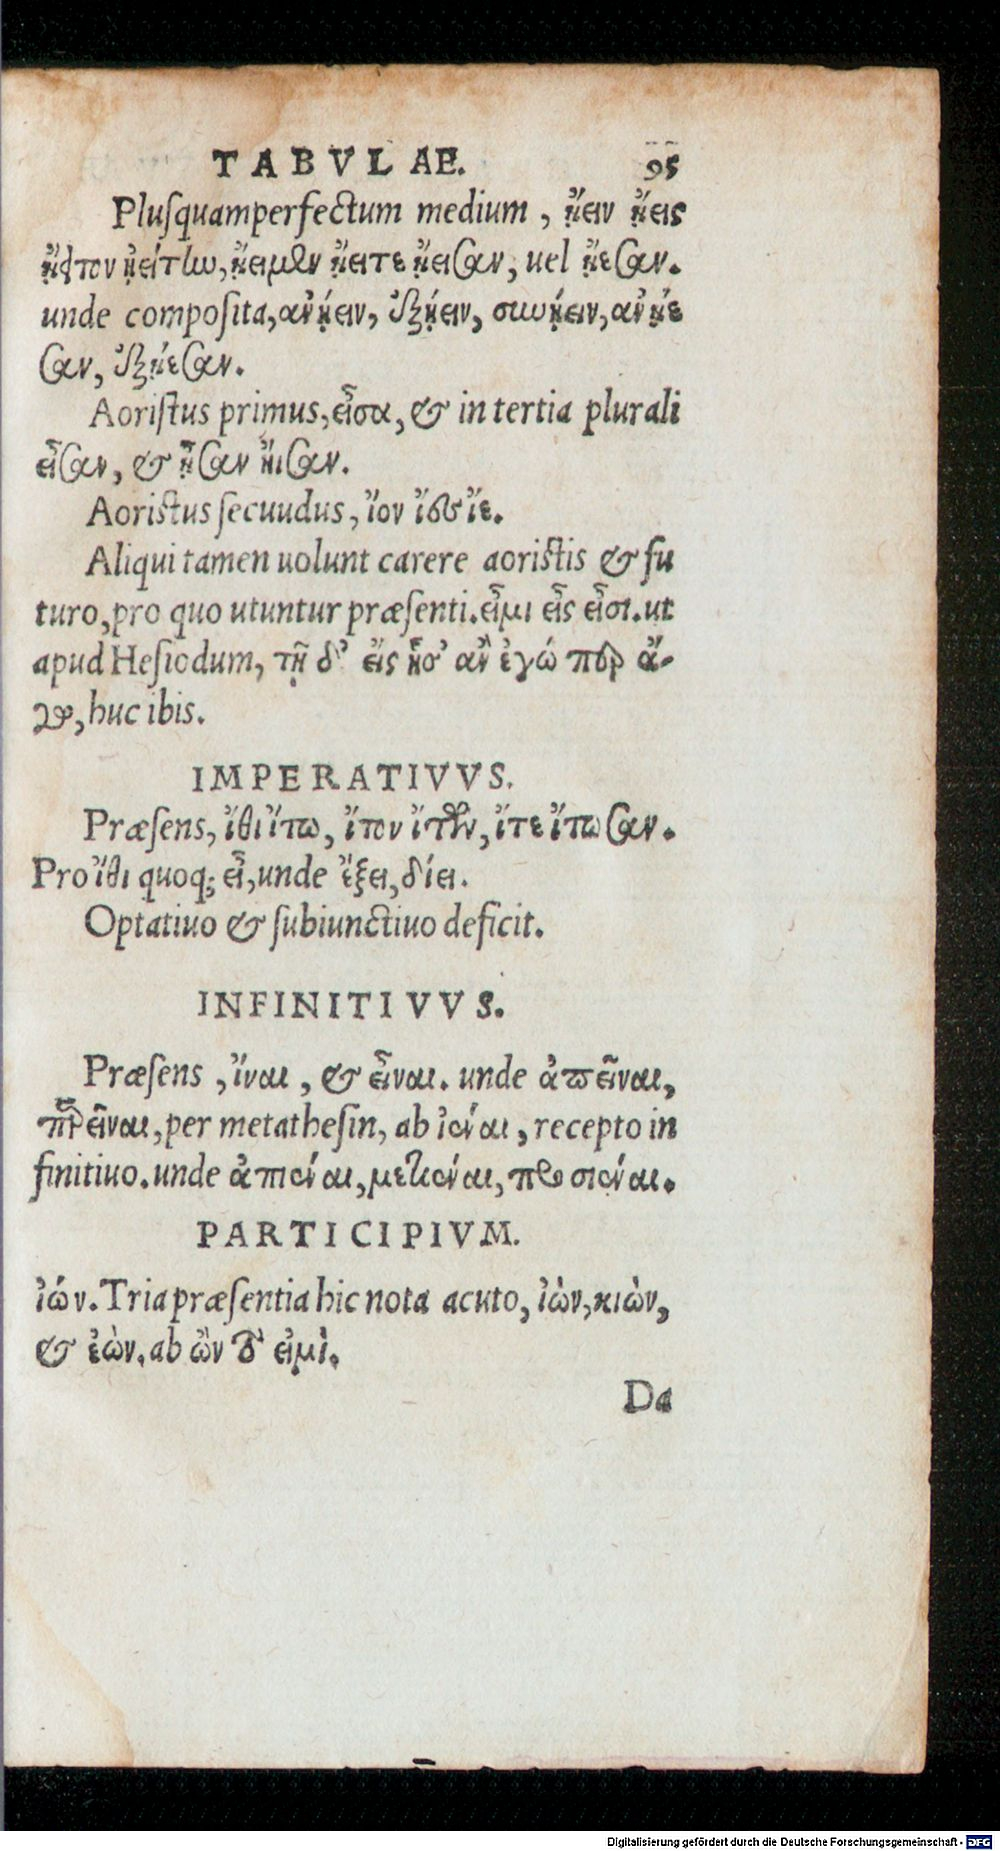 TABVLAE. 95
Plusquamperfectum medium, ᾔειν ᾔεις
ᾔειτον ᾐείτην, ᾔειμεν ᾔειτε ᾔεισαν, uel ᾔεσαν.
unde composita, ἀνῄειν, ἐξῄειν, συνῄειν, ἀνῄε
σαν, ἐξῄεσαν.
Aoristus primus, εἶσα, & in tertia plurali
εἶσαν, & ᾖσαν ἤισαν.
Aoristus secuudus, ἴον ἴες ἴε.
Aliqui tamen uolunt carere aoristis & fu
turo, pro quo utuntur præsenti. εἶμι εἶς εἶσι. ut
apud Hesiodum, τῇ δ' εἶς ᾗ σ' ἂν ἐγώ περ ἄ-
γω, huc ibis.
IMPERATIVVS.
Præsens, ἴθι ἴτω, ἴτον ἴτων, ἴτε ἴτωσαν.
Pro ἴθι quoq; εἶ, unde ἔξει, δίει.
Optatiuo & subiunctiuo deficit.
INFINITIVVS.
Præsens, ἴναι, & εἶναι. unde ἀπεῖναι,
εῖναι, per metathesin, ab ἰέναι, recepto in
finitiuo. unde ἀπιέναι, μετιέναι, προσιέναι.
PARTICIPIVM.
ἰών. Tria præsentia hic nota acuto, ἰὼν, κιὼν,
& ἐὼν. ab ὢν τοῦ εἰμὶ.
Da
Digitalisierung gefördert durch die Deutsche Forschungsgemeinschaft - DFG